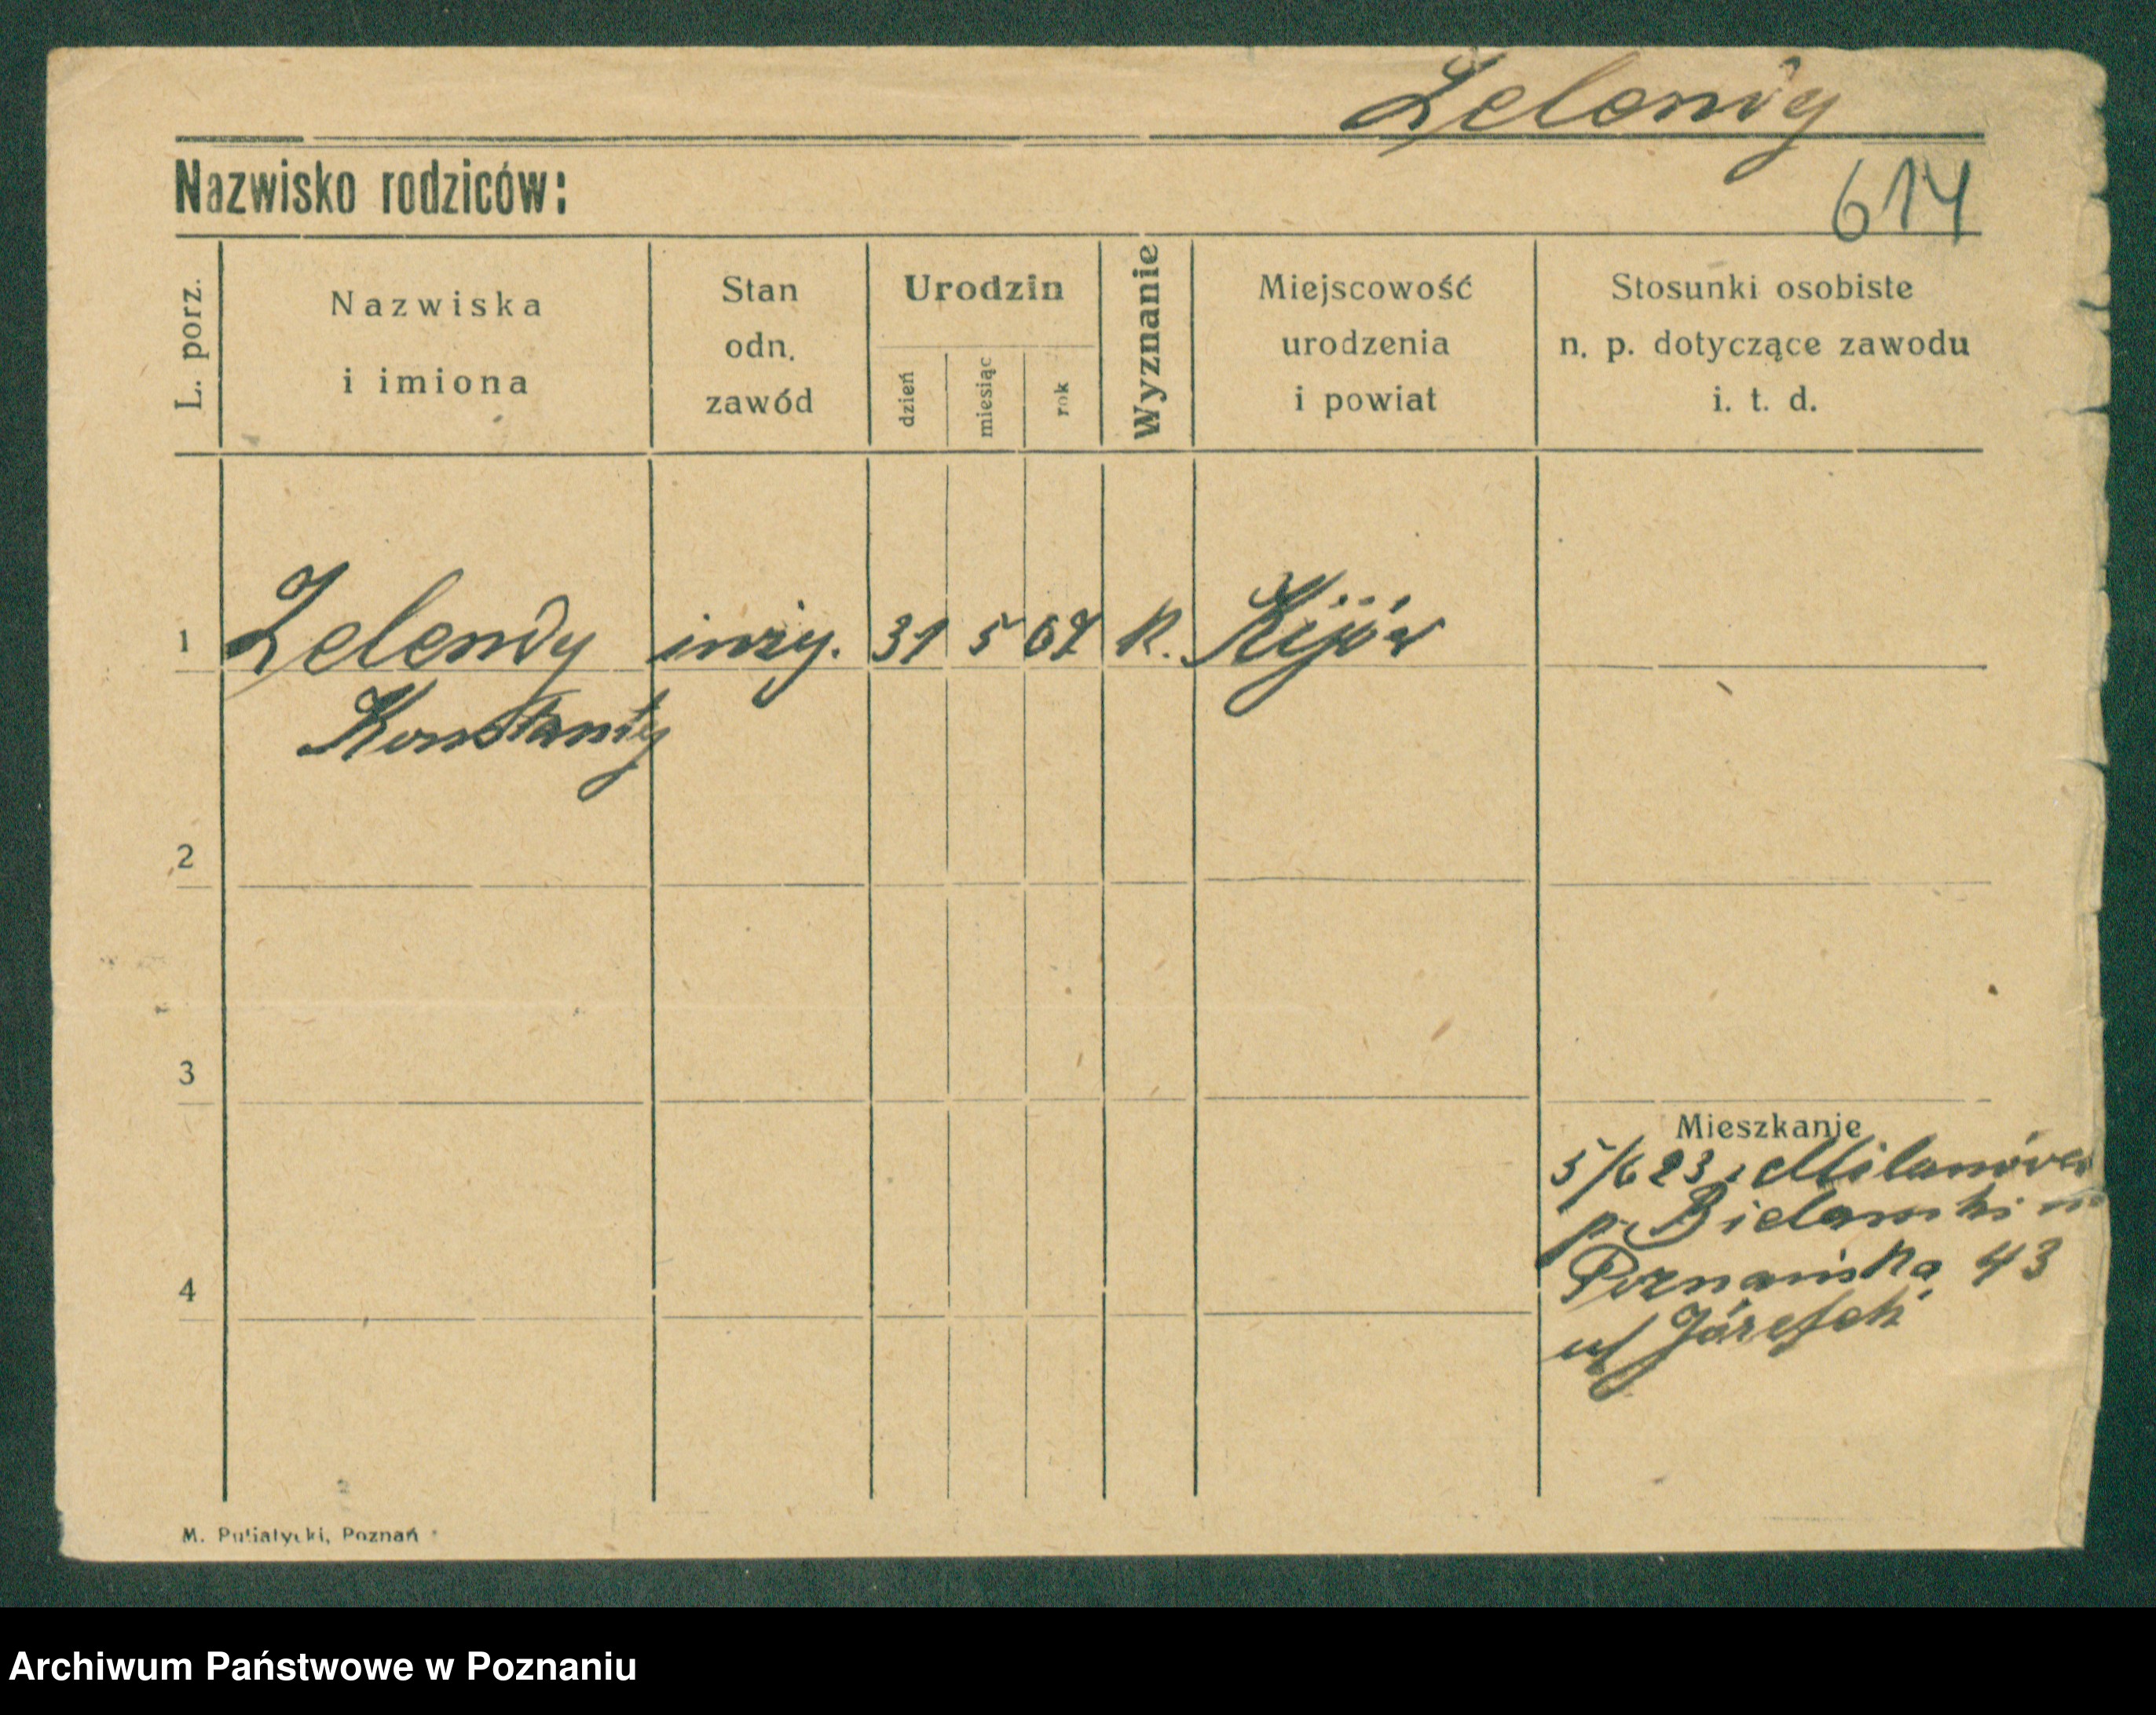 Zelenÿy
614
Nazwisko rodziców:
L. porz.
Nazwiska
i imiona
Stan
odn.
zawód
Urodzin
dzień
miesiąc
rok
Wyznanie
Miejscowość
urodzenia
i powiat
Stosunki osobiste
n. p. dotyczące zawodu
i. t. d.
1
inży. 31 5 67 K. Kijów
Konstanty
2
3
4
Mieszkanie
5/6 23
p. Bielawski
Poznańska 43
ul
M. Putiatycki, Poznań
Archiwum Państwowe w Poznaniu